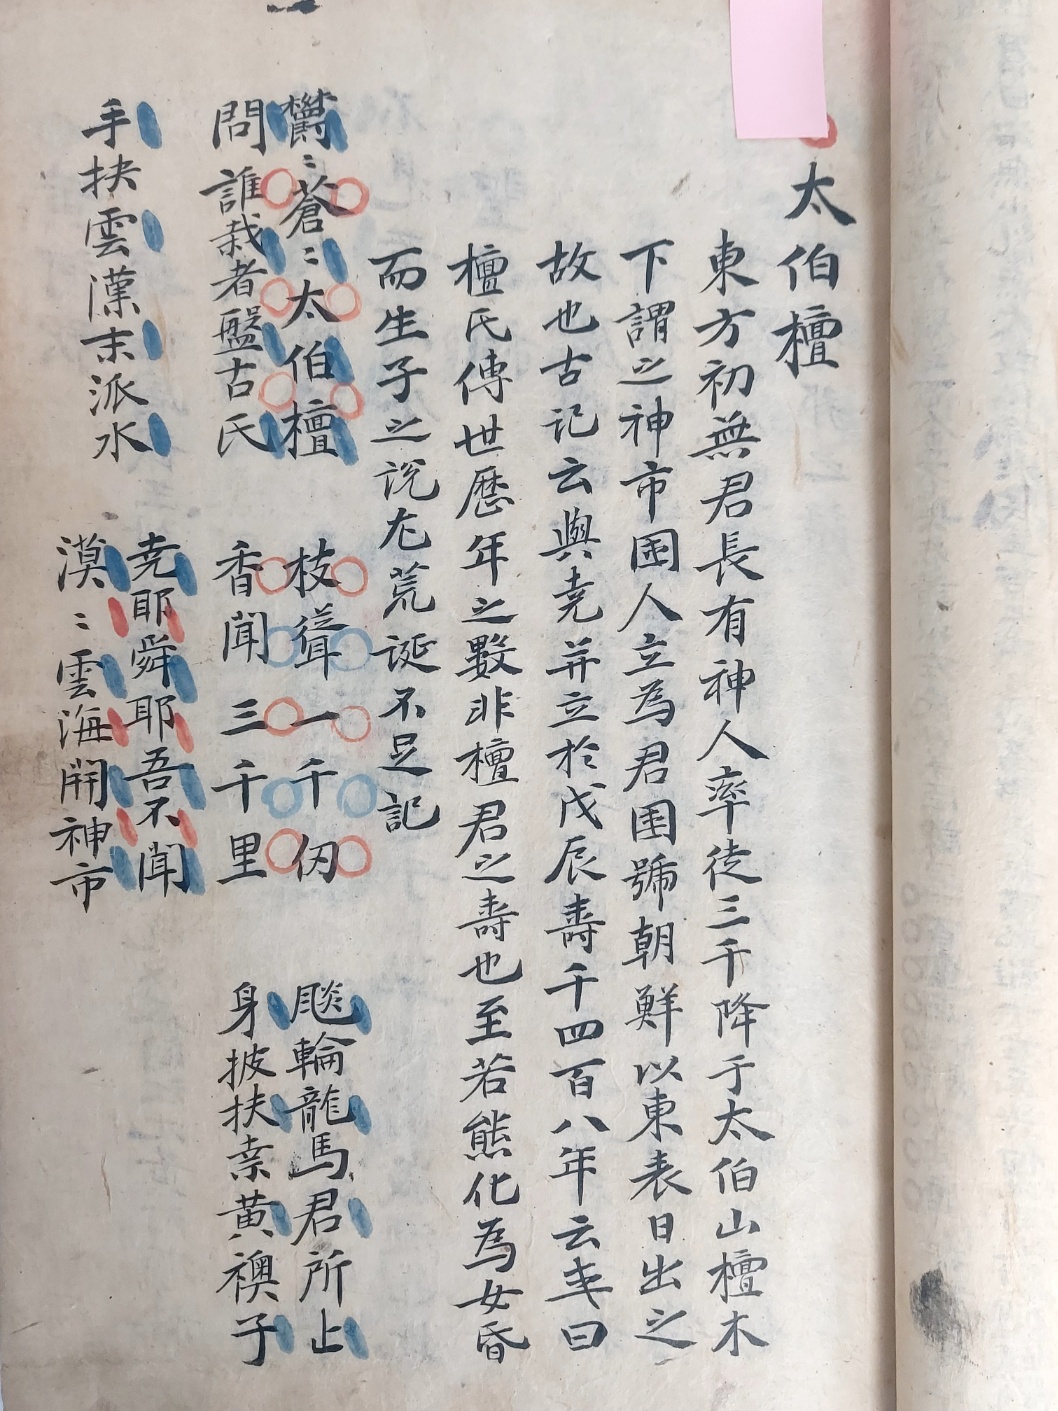 太伯檀
東方初無君長有神人率徒三千降于太伯山檀木
下謂之神市国人立為君国號朝鮮以東表日出之
故也古记云與堯并立於戊辰壽千四百八年云或曰
檀氏傳世歷年之數非檀君之壽也至若熊化為女昏
而生子之说尤荒诞不足記
欝〻蒼〻太伯檀 枝聳一千仞 飈輪龍馬君所止
問誰栽者盤古氏 香聞三千里 身披扶桒黄襖子
手抉雲漢末派水 堯耶舜耶吾不聞
漠〻雲海開神市